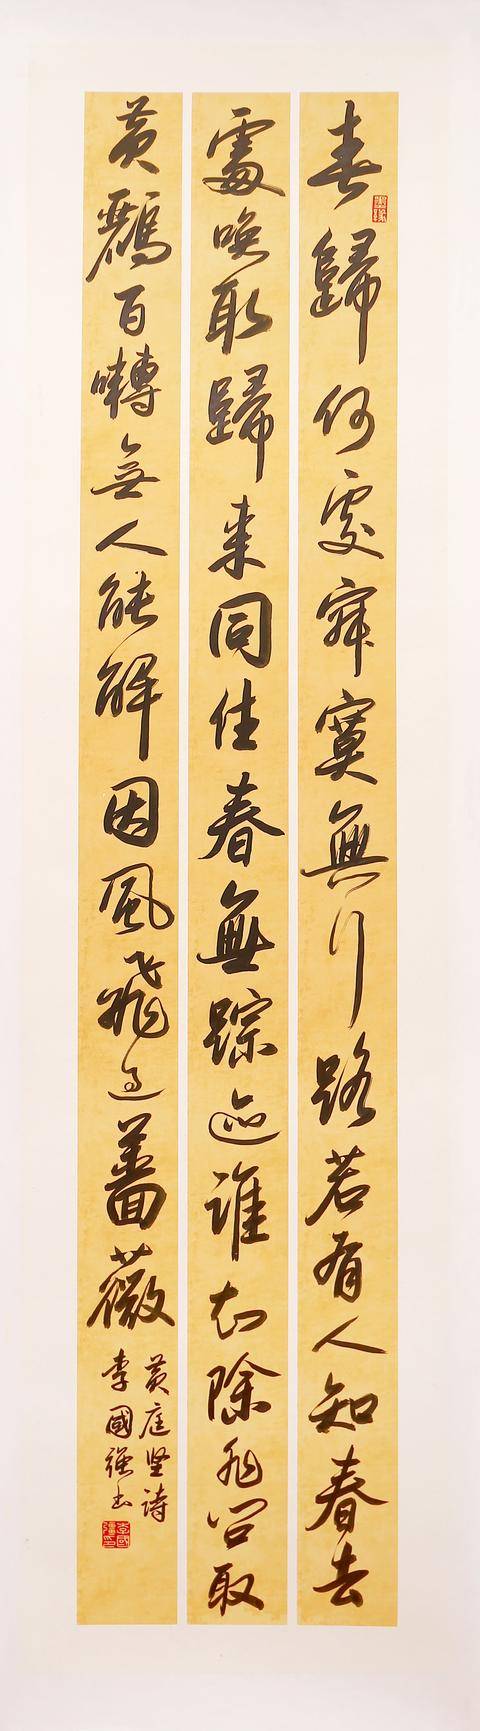 春歸何處寂寞無行路若有人知春去
處喚取歸來同住春無踪迹誰知除非问取
黄鸝百囀無人能解因風飛過薔薇
黄庭坚詩
李國强书
李國强印